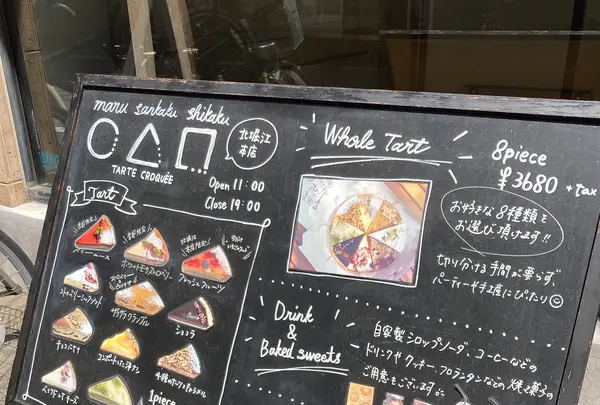 maru sankaku shikaku
TARTE CROQUÉE
北堀江
本店
Open 11:00
Close 19:00
Whole Tart
8piece
¥3680 +tax
お好きな8種類を
お選び頂けます!!
切り分ける手間が要らず、
パーティーや手土産にぴったり
Tart
ホワイトモンブランベリー
フレッシュフルーツ
ショコラ
チョコバナナ
4種のナッツとキャラメル
ベイクドチーズ
1piece
Drink
&
Baked sweets
自家製シロップソーダ、コーヒーなどの
ドリンクやクッキー、フロランタンなどの焼き菓子の
ご用意もございます